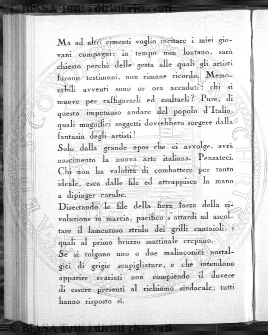 Ma ad altri cimenti voglio incitare i miei gio-
vani compagni: in tempo non lontano, sarà
chiesto perchè delle gesta alle quali gli artisti
furono testimoni, non rimane ricordo. Memo-
rabili avventi sono or ora accaduti: chi si
muove per raffigurarli ed esaltarli? Pure, di
questo impetuoso andare del popolo d'Italia,
quali magnifici soggetti dovrebbero sorgere dalla
fantasia degli artisti!
Solo dalla grande epos che ci avvolge, avrà
nascimento la nuova arte italiana. Pensateci.
Chi non ha validità di combattere per tanto
ideale, esca dalle file ed attrappisca la mano
a dipinger carube.
Disertando le file della fiera forza della ri-
voluzione in marcia, pacifico s'attardi ad ascol-
tare il lamentoso strido dei grilli cantaioli, i
quali al primo bruzzo mattinale crepano.
Se si tolgono uno o due malinconici nostal-
gici di grigie scapigliature, e che intendono
apparire svariati non compiendo il dovere
di essere presenti al richiamo sindacale; tutti
hanno risposto sì.